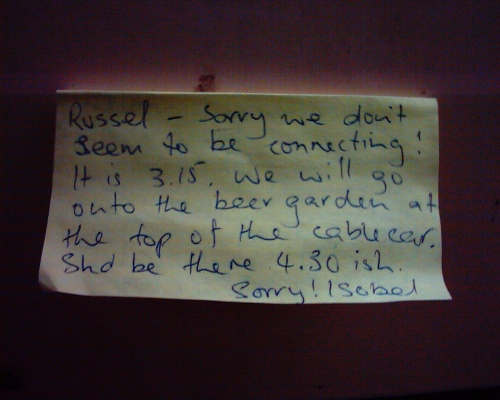 Russel - Sorry we don't
seem to be connecting!
It is 3.15. We will go
onto the beer garden at
the top of the cablecar.
Shd be there 4.30 ish.
Sorry! Isobel